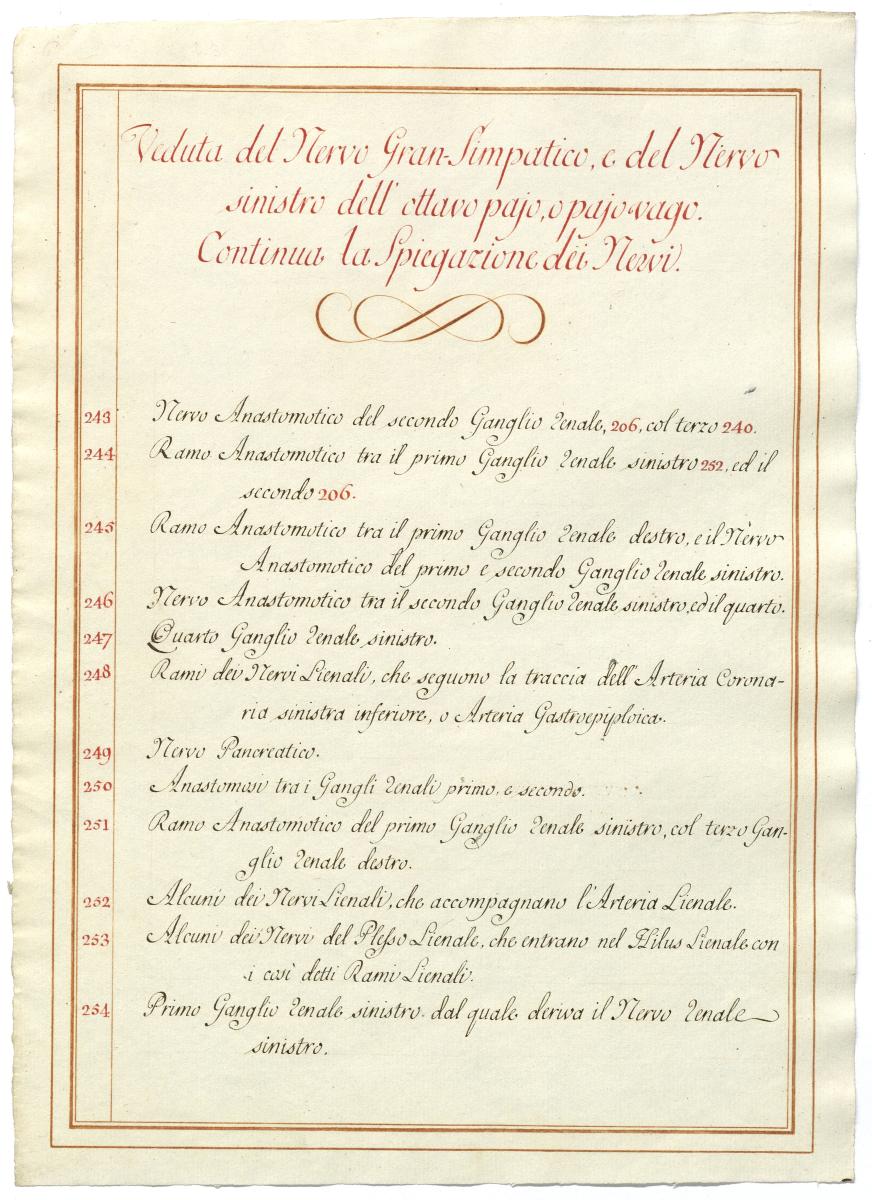 Veduta del Nervo Gran-Simpatico, e del Nervo
sinistro dell' ottavo pajo, o pajo vago.
Continua la Spiegazione dei Nervi.
243 Nervo Anastomotico del secondo Ganglio renale, 206, col terzo 240.
244 Ramo Anastomotico tra il primo Ganglio renale sinistro 252, ed il
secondo 206.
245 Ramo Anastomotico tra il primo Ganglio renale destro, e il Nervo
Anastomotico del primo e secondo Ganglio renale sinistro.
246 Nervo Anastomotico tra il secondo Ganglio renale sinistro, ed il quarto.
247 Quarto Ganglio renale sinistro.
248 Rami dei Nervi Lienali, che seguono la traccia dell' Arteria Corona-
ria sinistra inferiore, o Arteria Gastroepiploica.
249 Nervo Pancreatico.
250 Anastomosi tra i Gangli renali primo, e secondo.
251 Ramo Anastomotico del primo Ganglio renale sinistro, col terzo Gan-
glio renale destro.
252 Alcuni dei Nervi Lienali, che accompagnano l'Arteria Lienale.
253 Alcuni dei Nervi del Plesso Lienale, che entrano nel Hilus Lienale con
i così detti Rami Lienali.
254 Primo Ganglio renale sinistro dal quale deriva il Nervo renale
sinistro.